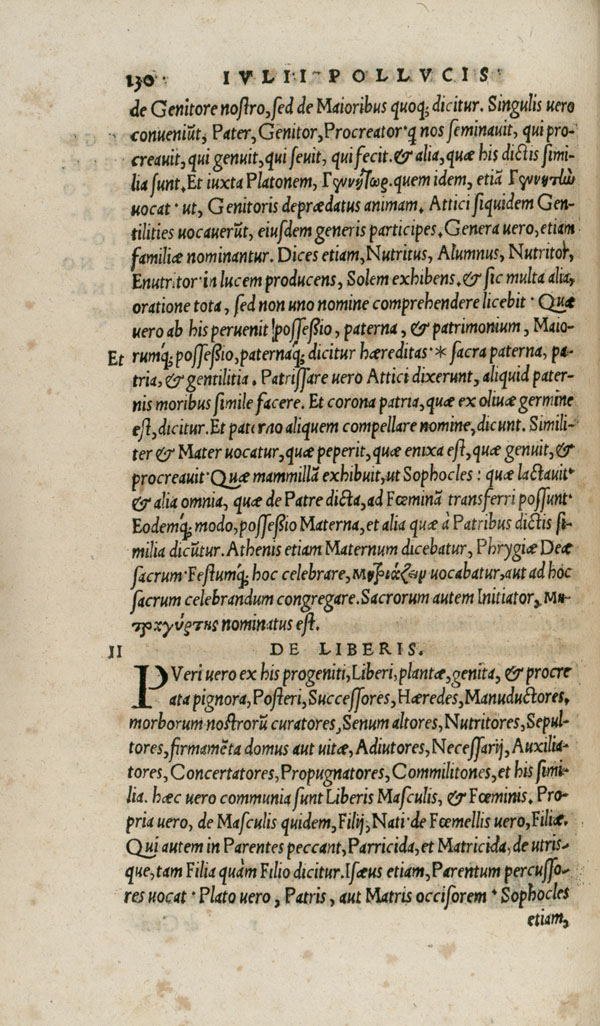 130· IVLII POLLVCIS
de Genitore nostro, sed de Maioribus quoq; dicitur. Singulis uero
conueniūt, Pater, Genitor, Procreator· q nos seminauit, qui pro-
creauit, qui genuit, qui seuit, qui fecit. & alia, quæ his dictis simi-
lia sunt, Et iuxta Platonem, Γεννήτωρ. quem idem, etiā Γεννητῶν
uocat · ut, Genitoris deprædatus animam. Attici siquidem Gen-
tilities uocauerūt, eiusdem generis participes. Genera uero, etiam
familiæ nominantur. Dices etiam, Nutritus, Alumnus, Nutritor,
Enutritor in lucem producens, Solem exhibens. & sic multa alia,
oratione tota, sed non uno nomine comprehendere licebit · Quæ
uero ab his peruenit possessio, paterna, & patrimonium, Maio-
Et rumq́; possessio, paternaq́; dicitur hæreditas·* sacra paterna, pa-
tria, & gentilitia. Patrissare uero Attici dixerunt, aliquid pater-
nis moribus simile facere. Et corona patria, quæ ex oliuæ germine
est, dicitur. Et paterno aliquem compellare nomine, dicunt. Simili-
ter & Mater uocatur, quæ peperit, quæ enixa est, quæ genuit, &
procreauit· Quæ mammillā exhibuit, ut Sophocles: quæ lactauit·
& alia omnia, quæ de Patre dicta, ad Fœminā transferri possunt·
Eodemq́; modo, possessio Materna, et alia quæ à Patribus dictis si-
milia dicūtur. Athenis etiam Maternum dicebatur, Phrygiæ Deæ
sacrum· Festumq́; hoc celebrare, uocabatur, aut ad hoc
sacrum celebrandum congregare. Sacrorum autem Initiator, Μη-
τραγύρτης nominatus est.
II DE LIBERIS.
PVeri uero ex his progeniti, Liberi, plantæ, genita, & procre
ata pignora, Posteri, Successores, Hæredes, Manuductores,
morborum nostrorū curatores, Senum altores, Nutritores, Sepul-
tores, firmamēta domus aut uitæ, Adiutores, Necessarij, Auxilia-
tores, Concertatores, Propugnatores, Commilitones, et his simi-
lia. hæc uero communia sunt Liberis Masculis, & Fœminis. Pro-
pria uero, de Masculis quidem, Filij, Nati· de Fœmellis uero, Filiæ.
Qui autem in Parentes peccant, Parricida, et Matricida, de utris-
que, tam Filia quàm Filio dicitur. Isæus etiam, Parentum percusso-
res uocat · Plato uero, Patris, aut Matris occisorem · Sophocles
etiam,